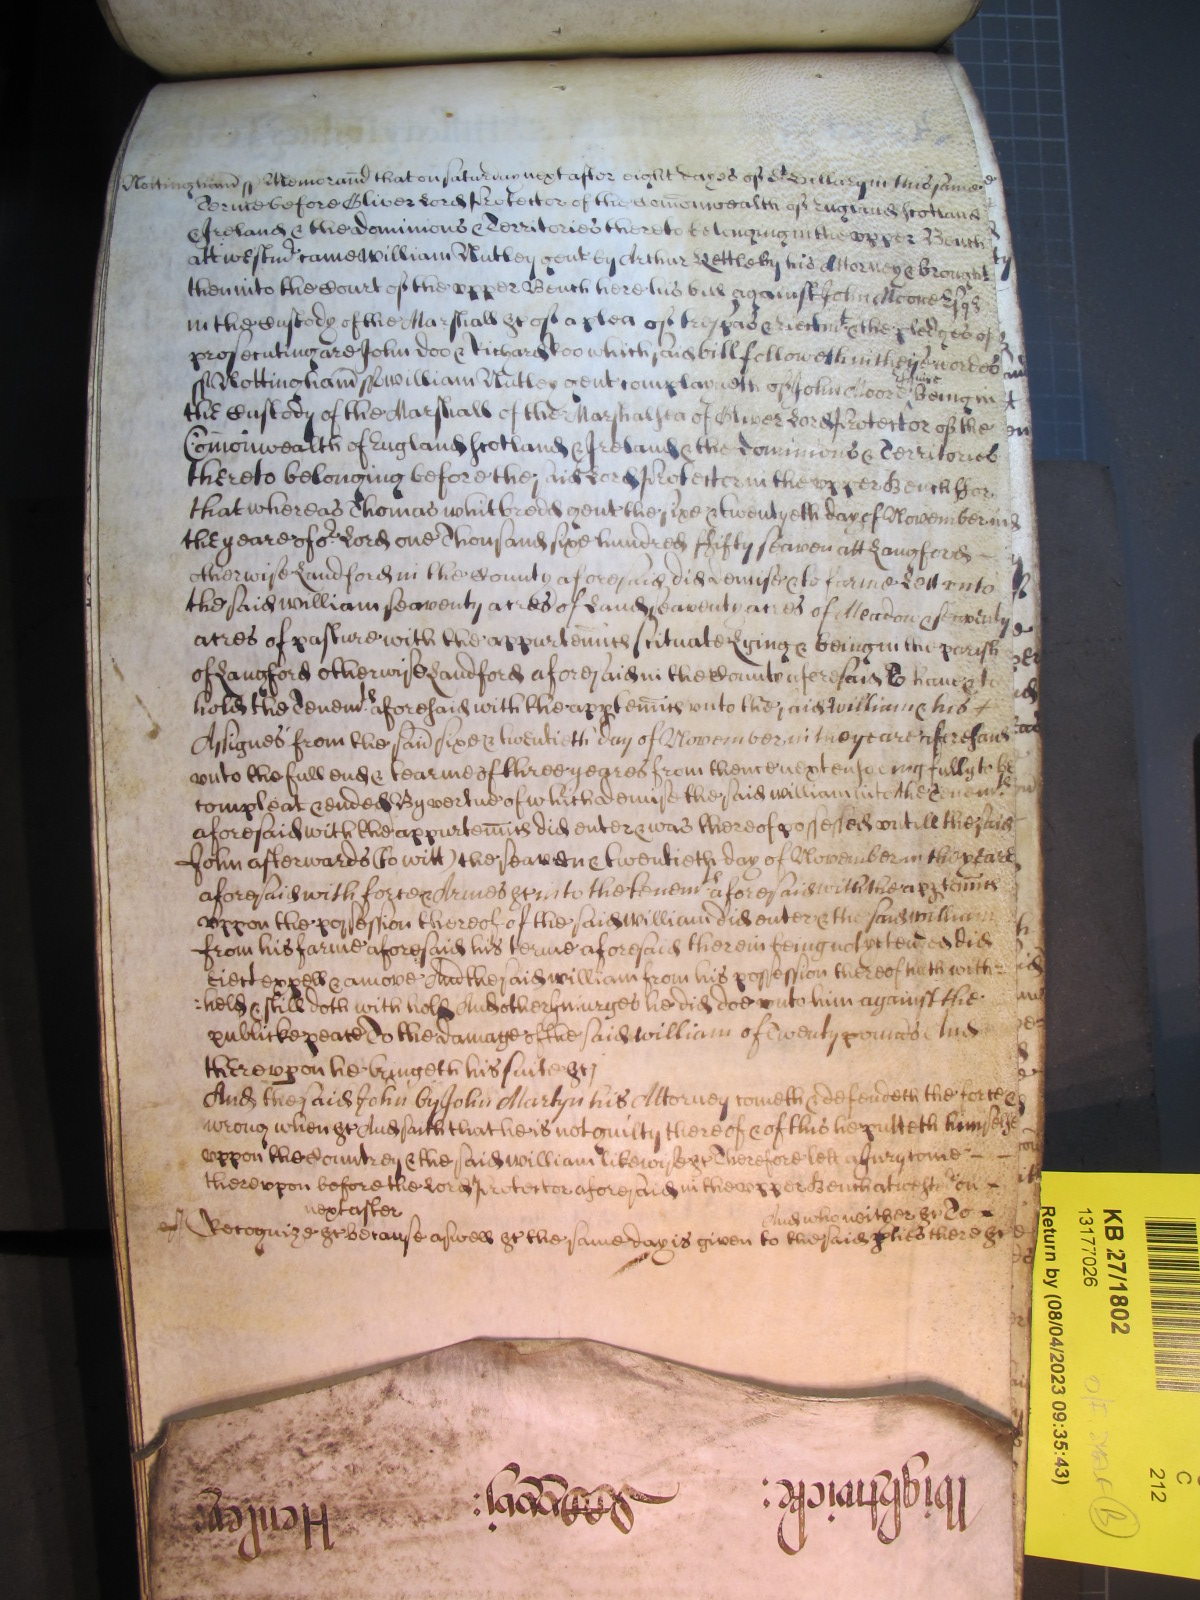 Nottingham ss Memorand that on Saturday next after eight dayes of St Hillary in this same
Terme before Oliver Lord Protector of the Comonwealth of England Scotland
& Ireland & the Dominions & Territories thereto belonging in the upper Bench
att Westmr came William Nutley gent by Arthur Kettleby his Attorney & brought
then into the Court of the upper Bench here his bill against John Moore Esqr
in the Custody of the Marshall &c of a plea of trespas & eiectmt & the pledges of
prosecuting are John Doo & Richard Roo which said bill followeth in theise words
ss Nottingham ss William Nutley gent complayneth of John Moore Esquire Being in
the Custody of the Marshall of the Marshalsea of Oliver Lord Protector of the
Comonwealth of England Scotland & Ireland & the dominions & Territories
thereto belonging before the said Lord Protector in the upper Bench For
that whereas Thomas Whitbredd gent the sixe & twentyeth day of November in
the yeare of or Lord one Thousand sixe hundred fifty seaven att Langford
otherwise Landford in the County aforesaid did demise & to farme Lett unto
the said William seaventy acres of Land seaventy acres of Meadow & seaventy
acres of pasture with the appurtenncs scituate Lying & being in the parish
of Langford otherwise Landford aforesaid in the County aforesaid To have & to
hold the Tenemts aforesaid with the apptenncs unto the said William & his
Assignes from the said sixe & twentieth day of November in the yeare aforesaid
unto the full end & tearme of three yeares from thence next ensueing fully to be
compleat & ended By vertue of which demise the said William into the Tenemts
aforesaid with the appurtenncs did enter & was thereof possessed untill the said
John afterwards (to witt) the seaven & twentieth day of November in the yeare
aforesaid with force & Armes &c into the tenemts aforesaid with the apptenncs
uppon the possession thereof of the said William did enter & the said William
from his farme aforesaid his terme aforesaid therein being not yet ended did
eiect expell & amove And the said William from his possession thereof hath with=
=held & still doth with hold And other Iniuryes he did doe unto him against the
publicke peace To the damage of the said William of Twenty pounds And
thereuppon he bringeth his suite &c
And the said John by John Martyn his Attorney cometh & defendeth the force &
wrong when &c And saith that he is not guilty thereof & of this he putteth himselfe
uppon the Countrey & the said William likewise &c Therefore lett a Jury come
thereuppon before the Lord Protector aforesaid in the upper Bench att Westmr on
next after And who neither &c To
Recognize &c because aswell &c the same day is given to the said pties there &c
Wightwicke:
Henley:
KB 27/1802
13177026
Return by (08/04/2023 09:35:43)
C
212